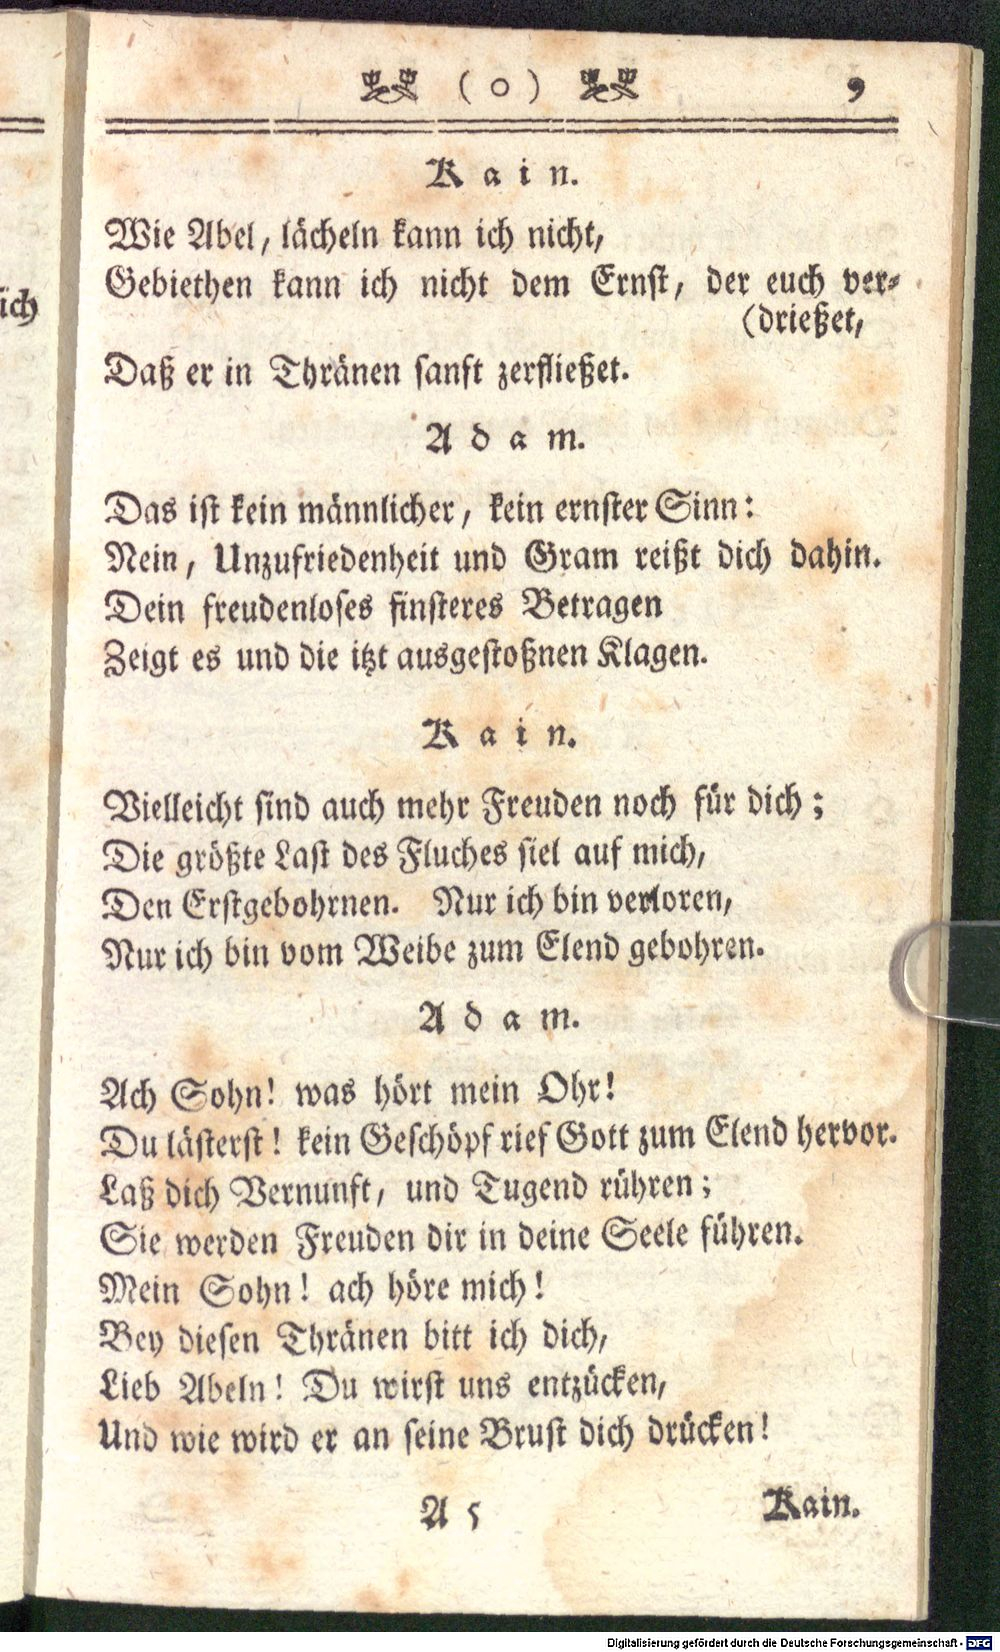 ( o ) 9
Kain.
Wie Abel, lächeln kann ich nicht,
Gebiethen kann ich nicht dem Ernst, der euch ver-
(drießet,
Daß er in Thränen sanft zerfließet.
Adam.
Das ist kein männlicher, kein ernster Sinn:
Nein, Unzufriedenheit und Gram reißt dich dahin.
Dein freudenloses finsteres Betragen
Zeigt es und die itzt ausgestoßnen Klagen.
Kain.
Vielleicht sind auch mehr Freuden noch für dich;
Die größte Last des Fluches fiel auf mich,
Den Erstgebohrnen. Nur ich bin verloren,
Nur ich bin vom Weibe zum Elend gebohren.
Adam.
Ach Sohn! was hört mein Ohr!
Du lästerst! kein Geschöpf rief Gott zum Elend hervor.
Laß dich Vernunft, und Tugend rühren;
Sie werden Freuden dir in deine Seele führen.
Mein Sohn! ach höre mich!
Bey diesen Thränen bitt ich dich,
Lieb Abeln! Du wirst uns entzücken,
Und wie wird er an seine Brust dich drücken!
A 5 Kain.
ich
Digitalisierung gefördert durch die Deutsche Forschungsgemeinschaft - DFG